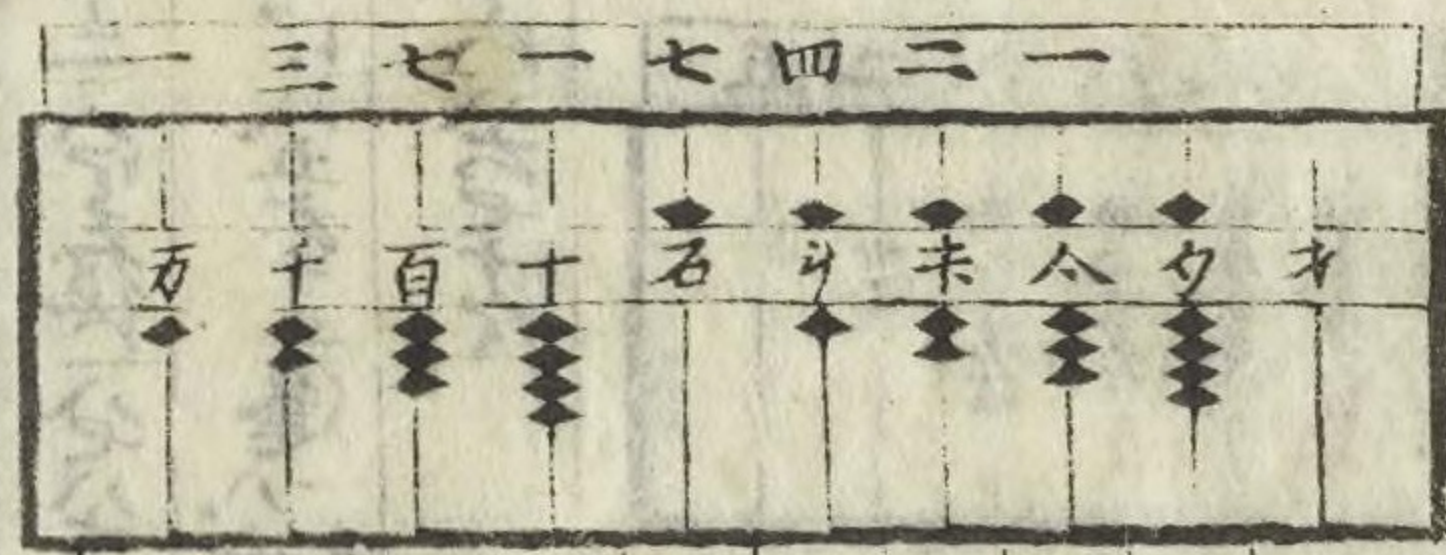 一三七一七四二一
万千百十石斗未合勺才